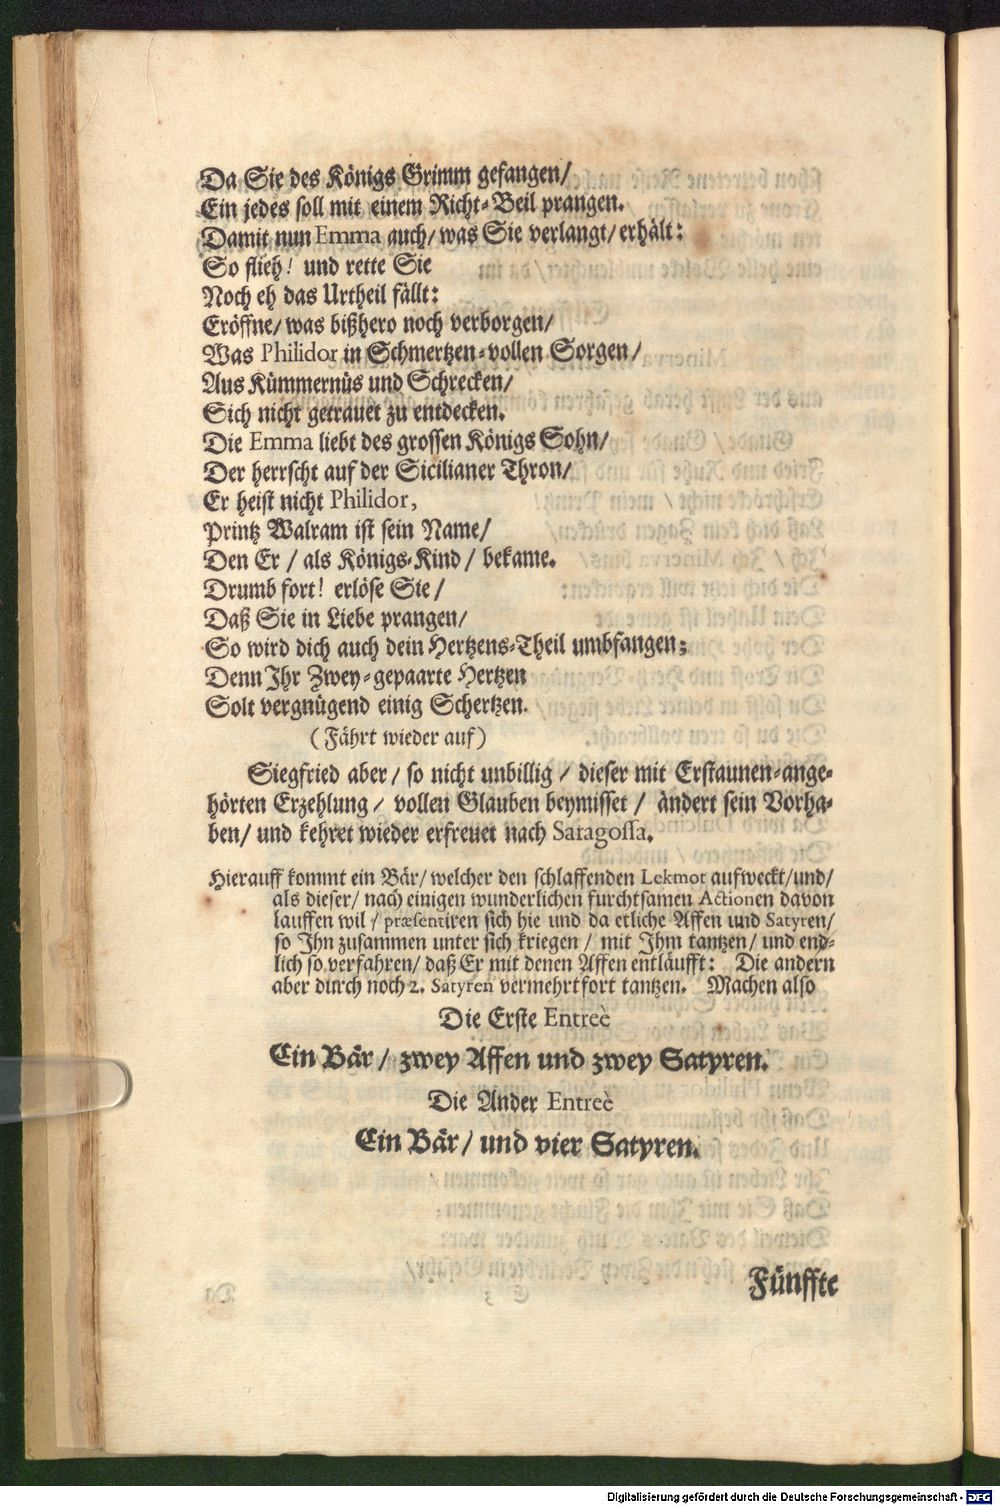 Da Sie des Königs Grimm gefangen/
Ein jedes soll mit einem Richt-Beil prangen.
Damit nun Emma auch/ was Sie verlangt/ erhält:
So flieh! und rette Sie
Noch eh das Urtheil fällt:
Eröffne/ was bißhero noch verborgen/
Was Philidor in Schmertzen-vollen Sorgen/
Aus Kümmernüs und Schrecken/
Sich nicht getrauet zu entdecken.
Die Emma liebt des grossen Königs Sohn/
Der herrscht auf der Sicilianer Thron/
Er heist nicht Philidor,
Printz Walram ist sein Name/
Den Er / als Königs-Kind / bekame.
Drumb fort! erlöse Sie/
Daß Sie in Liebe prangen/
So wird dich auch dein Hertzens-Theil umbfangen;
Denn Ihr Zwey-gepaarte Hertzen
Solt vergnügend einig Schertzen.
(Fährt wieder auf)
Siegfried aber/ so nicht unbillig / dieser mit Erstaunen-ange-
hörten Erzehlung/ vollen Glauben beymisset / ändert sein Vorha-
ben/ und kehret wieder erfreuet nach Saragossa.
Hierauff kommt ein Bär/ welcher den schlaffenden Lekmot aufweckt/und/
als dieser/ nach einigen wunderlichen furchtsamen Actionen davon
lauffen wil / præsentiren sich hie und da etliche Affen und Satyren/
so Ihn zusammen unter sich kriegen / mit Ihm tantzen/ und end-
lich so verfahren/ daß Er mit denen Affen entläufft: Die andern
aber durch noch 2. Satyren vermehrt fort tantzen. Machen also
Die Erste Entreè
Ein Bär/ zwey Affen und zwey Satyren.
Die Ander Entreè
Ein Bär/ und vier Satyren.
Fünffte
Digitalisierung gefördert durch die Deutsche Forschungsgemeinschaft - DFG